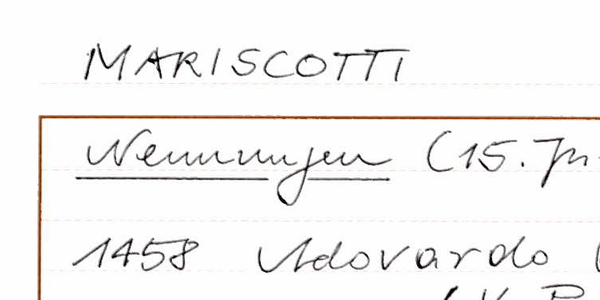 MARISCOTTI
Nennungen (15. Jh.
1458 Adovardo